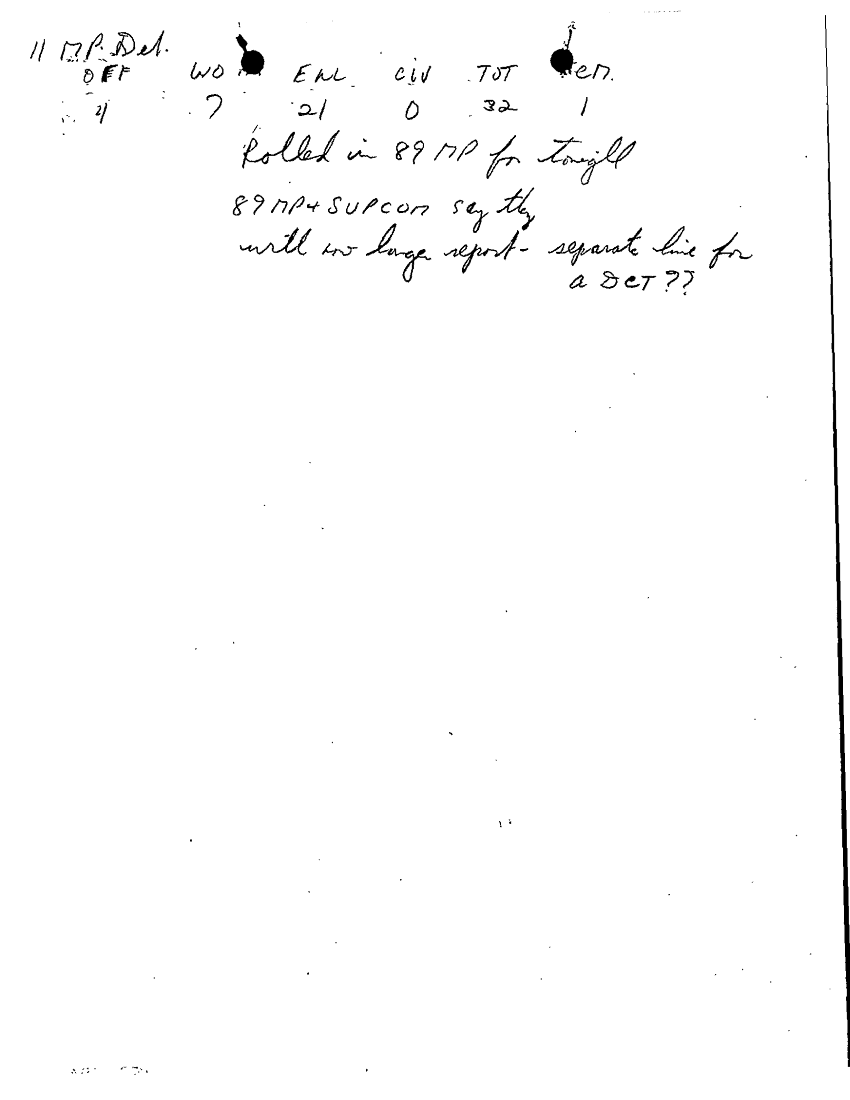 11 MP. Det.
OFF WO ENL CIV TOT Fem.
4 7 21 0 32 1
Rolled in 89 MP for tonight
89 MP + SUPCOM say they
will no longer report - separate line for
a DET ??